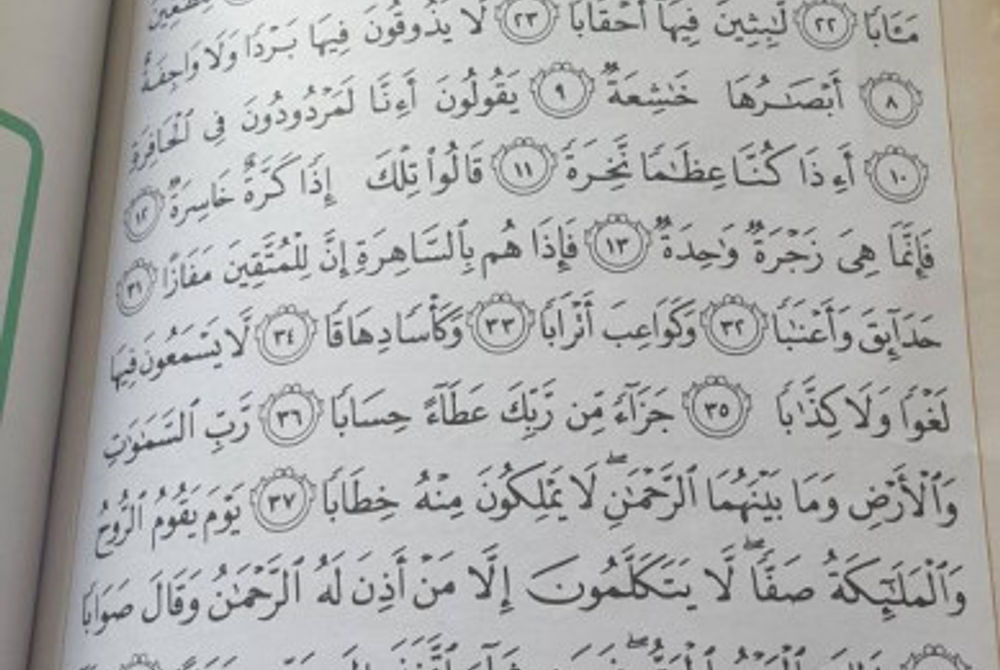 مَـَٔابًا ٢٢ لَّٰبِثِينَ فِيهَآ أَحْقَابًا ٢٣ لَّا يَذُوقُونَ فِيهَا بَرْدًا وَلَا وَاجِفَةٌ
٨ أَبْصَٰرُهَا خَٰشِعَةٌ ٩ يَقُولُونَ أَءِنَّا لَمَرْدُودُونَ فِى ٱلْحَافِرَةِ
١٠ أَءِذَا كُنَّا عِظَٰمًا نَّخِرَةً ١١ قَالُوا۟ تِلْكَ إِذًا كَرَّةٌ خَاسِرَةٌ ١٢
فَإِنَّمَا هِىَ زَجْرَةٌ وَٰحِدَةٌ ١٣ فَإِذَا هُم بِٱلسَّاهِرَةِ إِنَّ لِلْمُتَّقِينَ مَفَازًا ٣١
حَدَآئِقَ وَأَعْنَٰبًا ٣٢ وَكَوَاعِبَ أَتْرَابًا ٣٣ وَكَأْسًا دِهَاقًا ٣٤ لَّا يَسْمَعُونَ فِيهَا
لَغْوًا وَلَا كِذَّٰبًا ٣٥ جَزَآءً مِّن رَّبِّكَ عَطَآءً حِسَابًا ٣٦ رَّبِّ ٱلسَّمَٰوَٰتِ
وَٱلْأَرْضِ وَمَا بَيْنَهُمَا ٱلرَّحْمَٰنِ ۖ لَا يَمْلِكُونَ مِنْهُ خِطَابًا ٣٧ يَوْمَ يَقُومُ ٱلرُّوحُ
وَٱلْمَلَٰٓئِكَةُ صَفًّا ۖ لَّا يَتَكَلَّمُونَ إِلَّا مَنْ أَذِنَ لَهُ ٱلرَّحْمَٰنُ وَقَالَ صَوَابًا